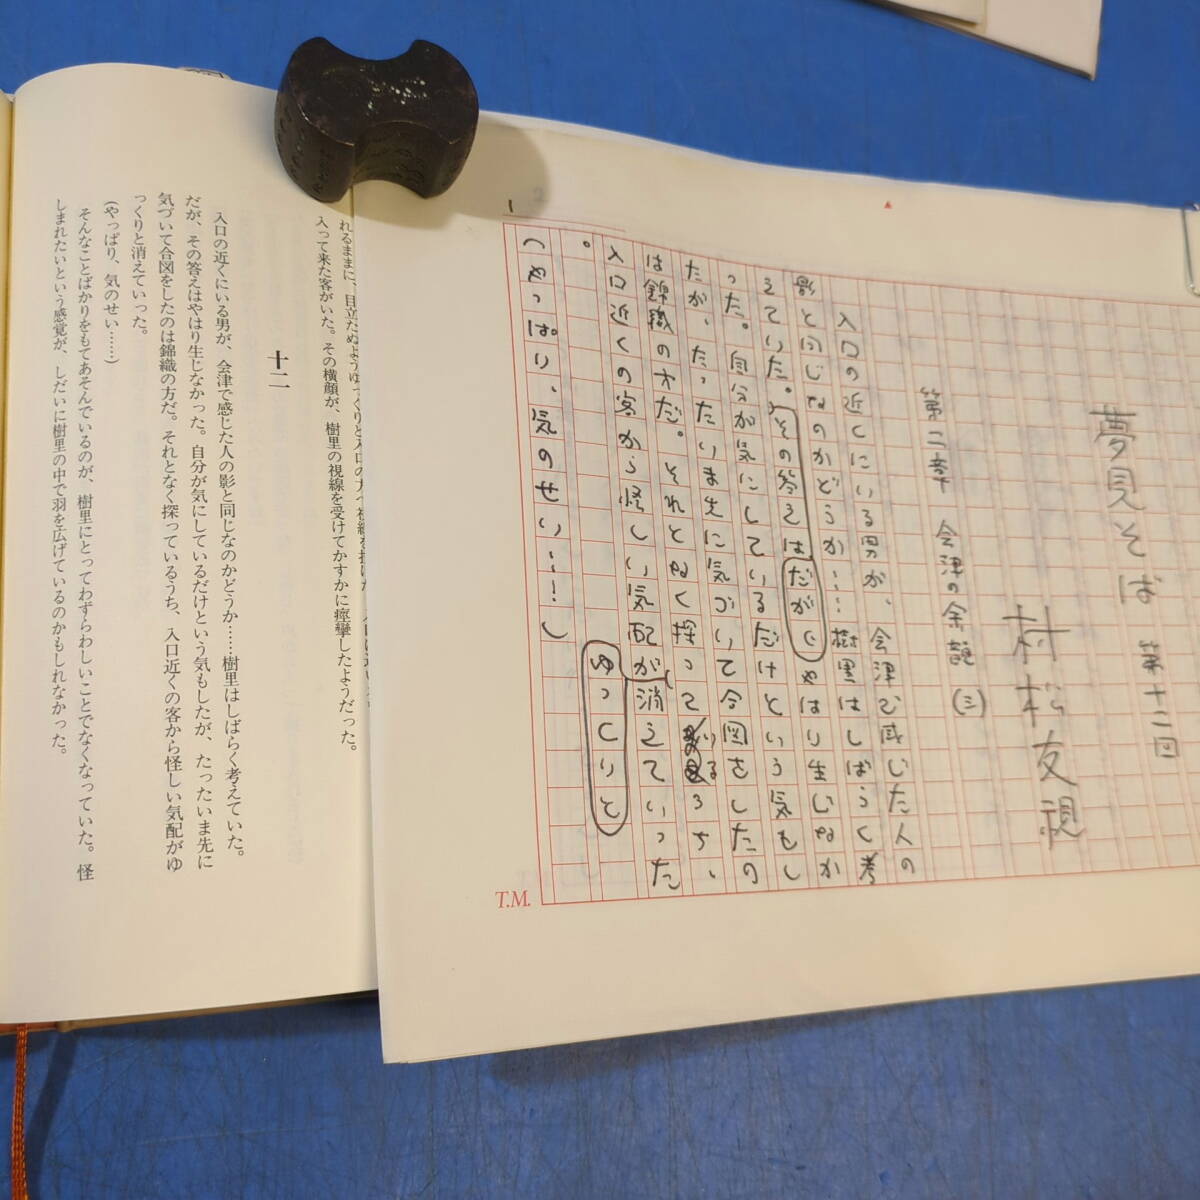 夢見そば 第十二回
村松友視
第二章 会津の余韻(三)
入口の近くにいる男が、会津で感じた人の
影と同じなのかどうか……樹里はしばらく考
えていた。その答えはだが、やはり生じなか
った。自分が気にしているだけという気もし
たが、たったいま先に気づいて合図をしたの
は錦織の方だ。それとなく探っているうち、
入口近くの客から怪しい気配がゆっくりと消えていった
。
(やっぱり、気のせい……)
1
T.M.
れるまま、目立たぬようゆっくりと入口の方へ視線を
入って来た客がいた。その横顔が、樹里の視線を受けてかすかに痙攣したようだった。
十二
入口の近くにいる男が、会津で感じた人の影と同じなのかどうか……樹里はしばらく考えていた。
だが、その答えはやはり生じなかった。自分が気にしているだけという気もしたが、たったいま先に
気づいて合図をしたのは錦織の方だ。それとなく探っているうち、入口近くの客から怪しい気配がゆ
っくりと消えていった。
(やっぱり、気のせい……)
そんなことばかりをもてあそんでいるのが、樹里にとってわずらわしいことでなくなっていた。怪
しまれたいという感覚が、しだいに樹里の中で羽を広げているのかもしれなかった。